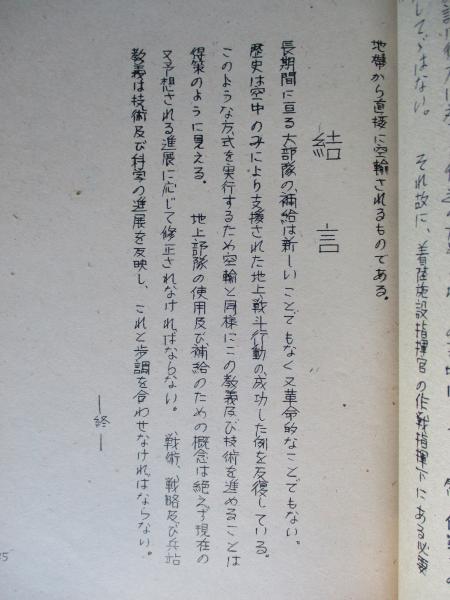 してはない。 それ故に、着陸施設指揮官の作戦指揮下にある必要
地帯から直接に空輸されるものである。
結言
長期間に亘る大部隊の補給は新しいことでもなく又革命的なことでもない。
歴史は空中のみにより支援された地上戦斗行動の成功した例を反復している。
このような方式を実行するため空輸と同様にこの教義及び技術を進めることは
得策のように見える。 地上部隊の使用及び補給のための概念は絶えず現在の
又予想される進展に応じて修正されなければならない。 戦術、戦略及び兵站
教義は技術及び科学の進展を反映し、これと歩調を合わせなければならない。
―終―